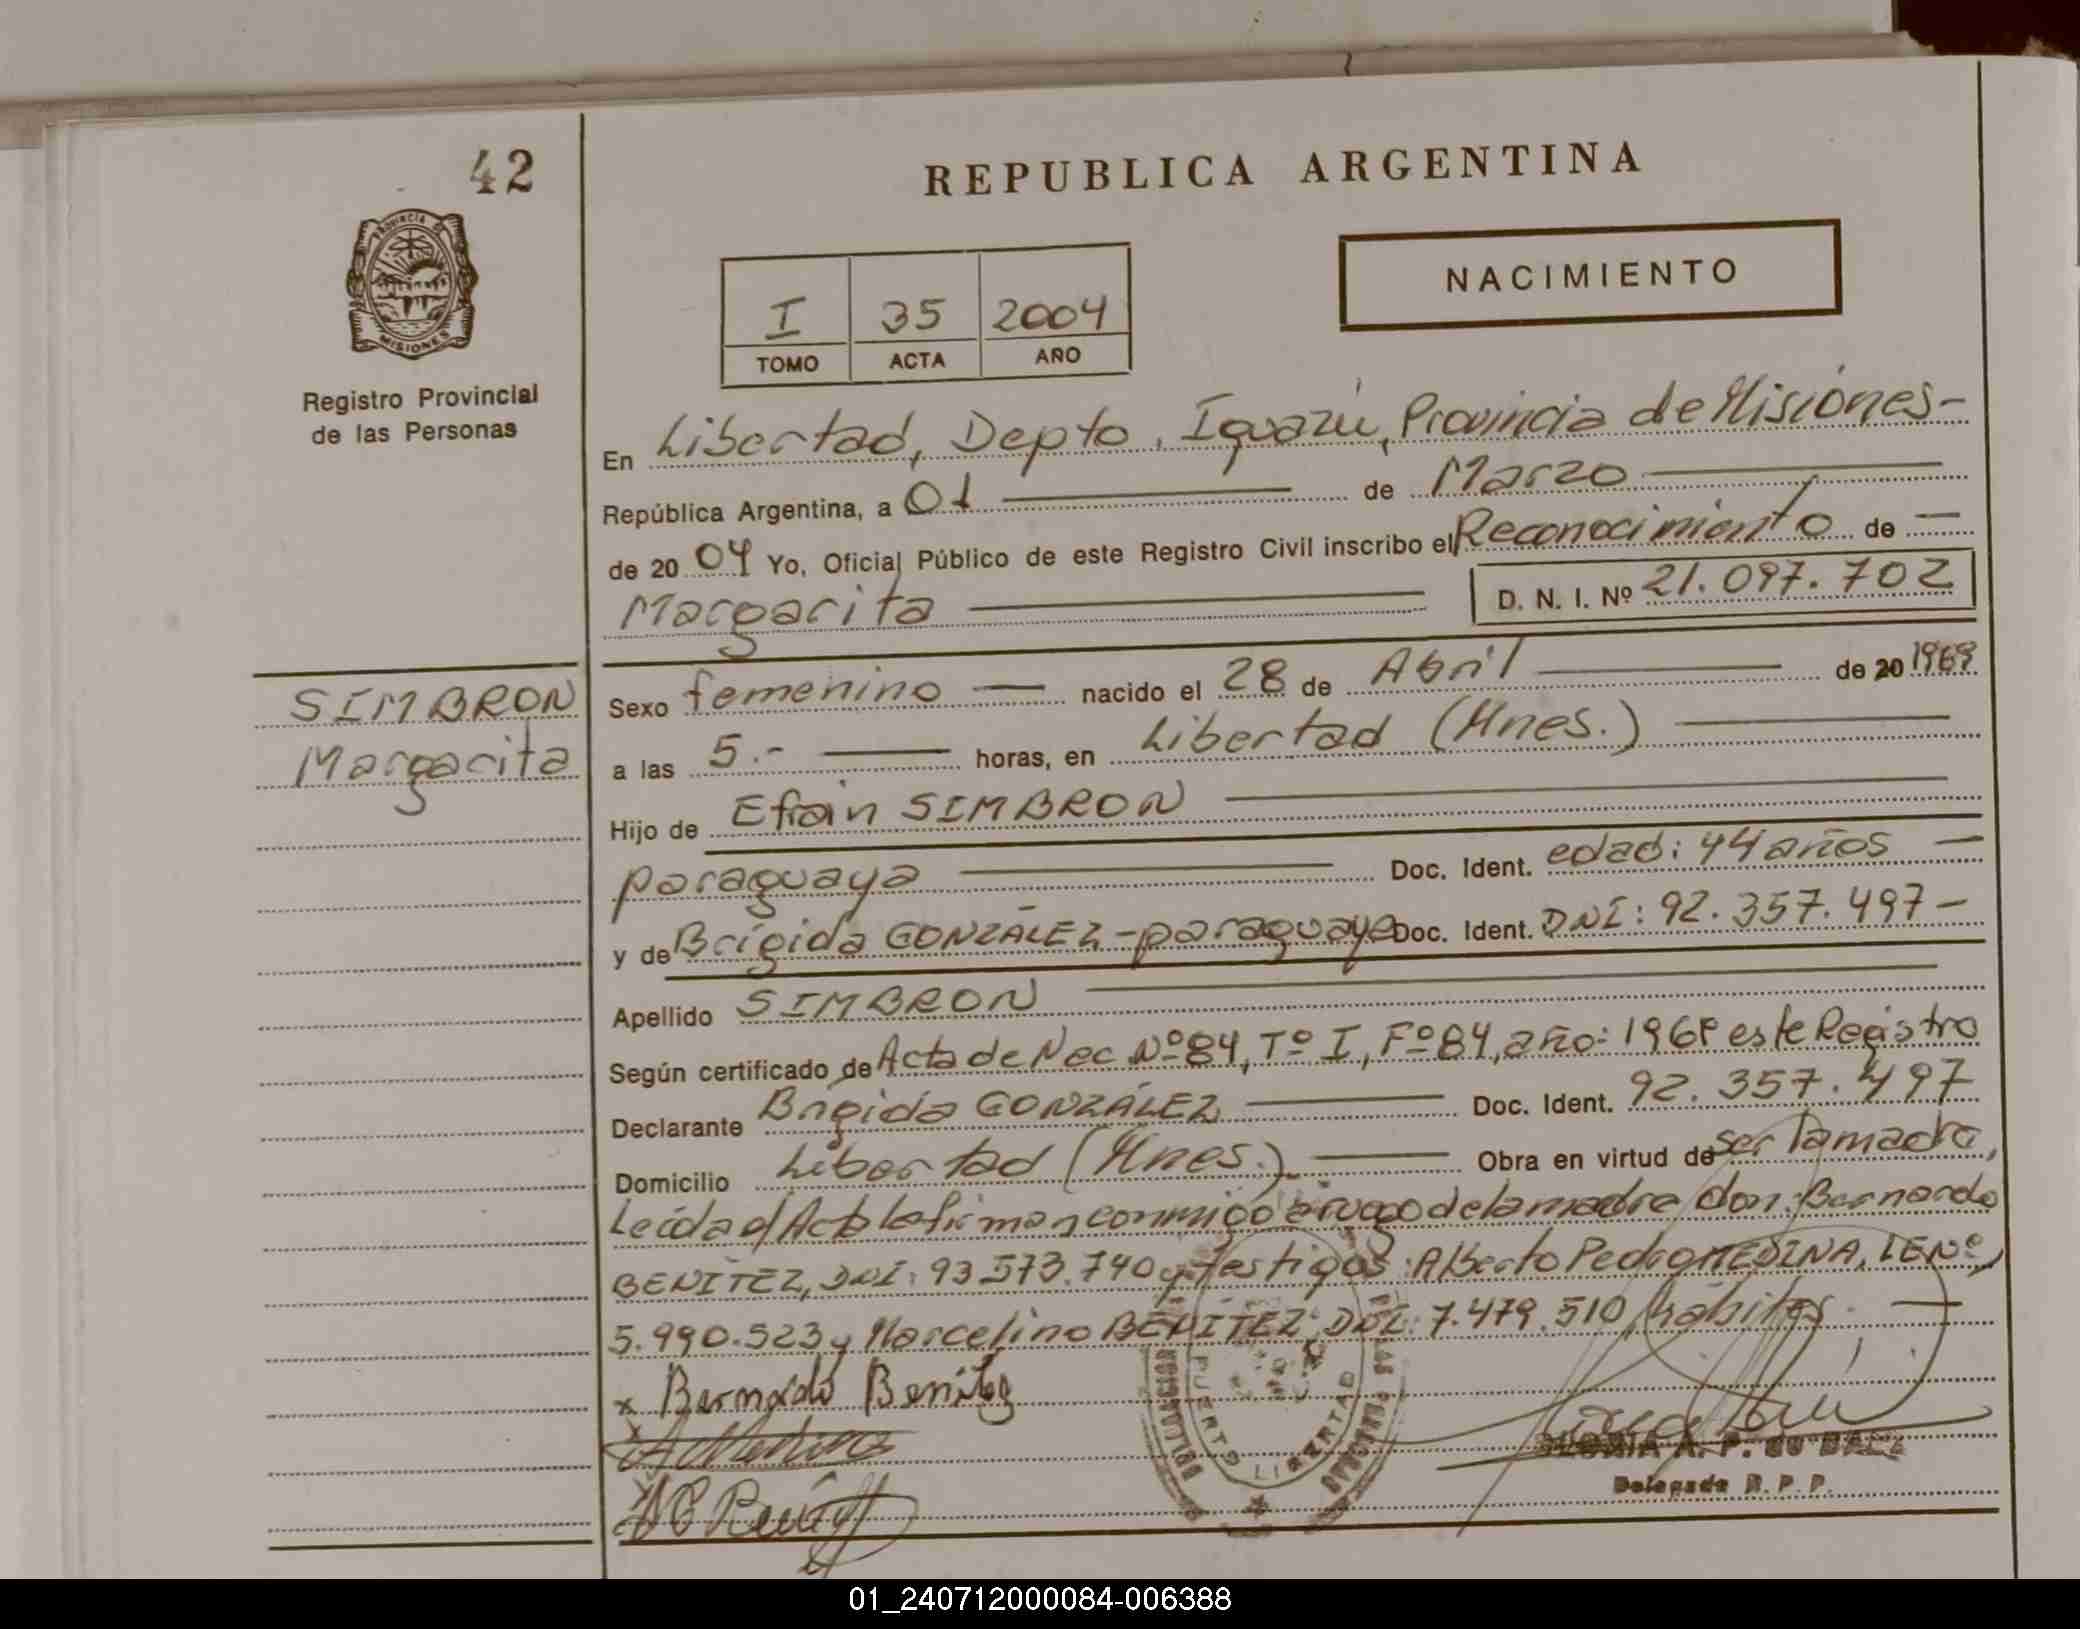 42
REPUBLICA ARGENTINA
PROVINCIA DE
MISIONES
Registro Provincial
de las Personas
I 35 2004
TOMO ACTA AÑO
NACIMIENTO
En Libertad, Depto. Iguazú, Provincia de Misiones-
República Argentina, a 01 de Marzo
de 2004 Yo, Oficial Público de este Registro Civil inscribo el Reconocimiento de
Margarita D. N. I. Nº 21.097.702
SIMBRON
Margarita
Sexo femenino nacido el 28 de Abril de 20 1969
a las 5.- horas, en Libertad (Mnes.)
Hijo de Efrain SIMBRON
paraguaya Doc. Ident. edad: 44 años
y de Brígida GONZÁLEZ - paraguaya Doc. Ident. DNI: 92.357.497-
Apellido SIMBRON
Según certificado de Acta de Nac. Nº 84, Tº I, Fº 84, año: este Registro
Declarante Brígida GONZÁLEZ Doc. Ident. 92.357.497
Domicilio Libertad (Mnes.) Obra en virtud de ser la madre,
Leída el Acta la firman conmigo a ruego de la madre don: Bernardo
BENÍTEZ, DNI: 93.573.740 y testigos: Alberto Pedro MEDINA, LE Nº
5.990.523 y Marcelino BENÍTEZ, DNI: 7.479.510, hábiles.
x Bernardo Benitez
x A Medina
x
PUERTO LIBERTAD
GLORIA A. P. de
Delegada R. P. P.
01_240712000084-006388